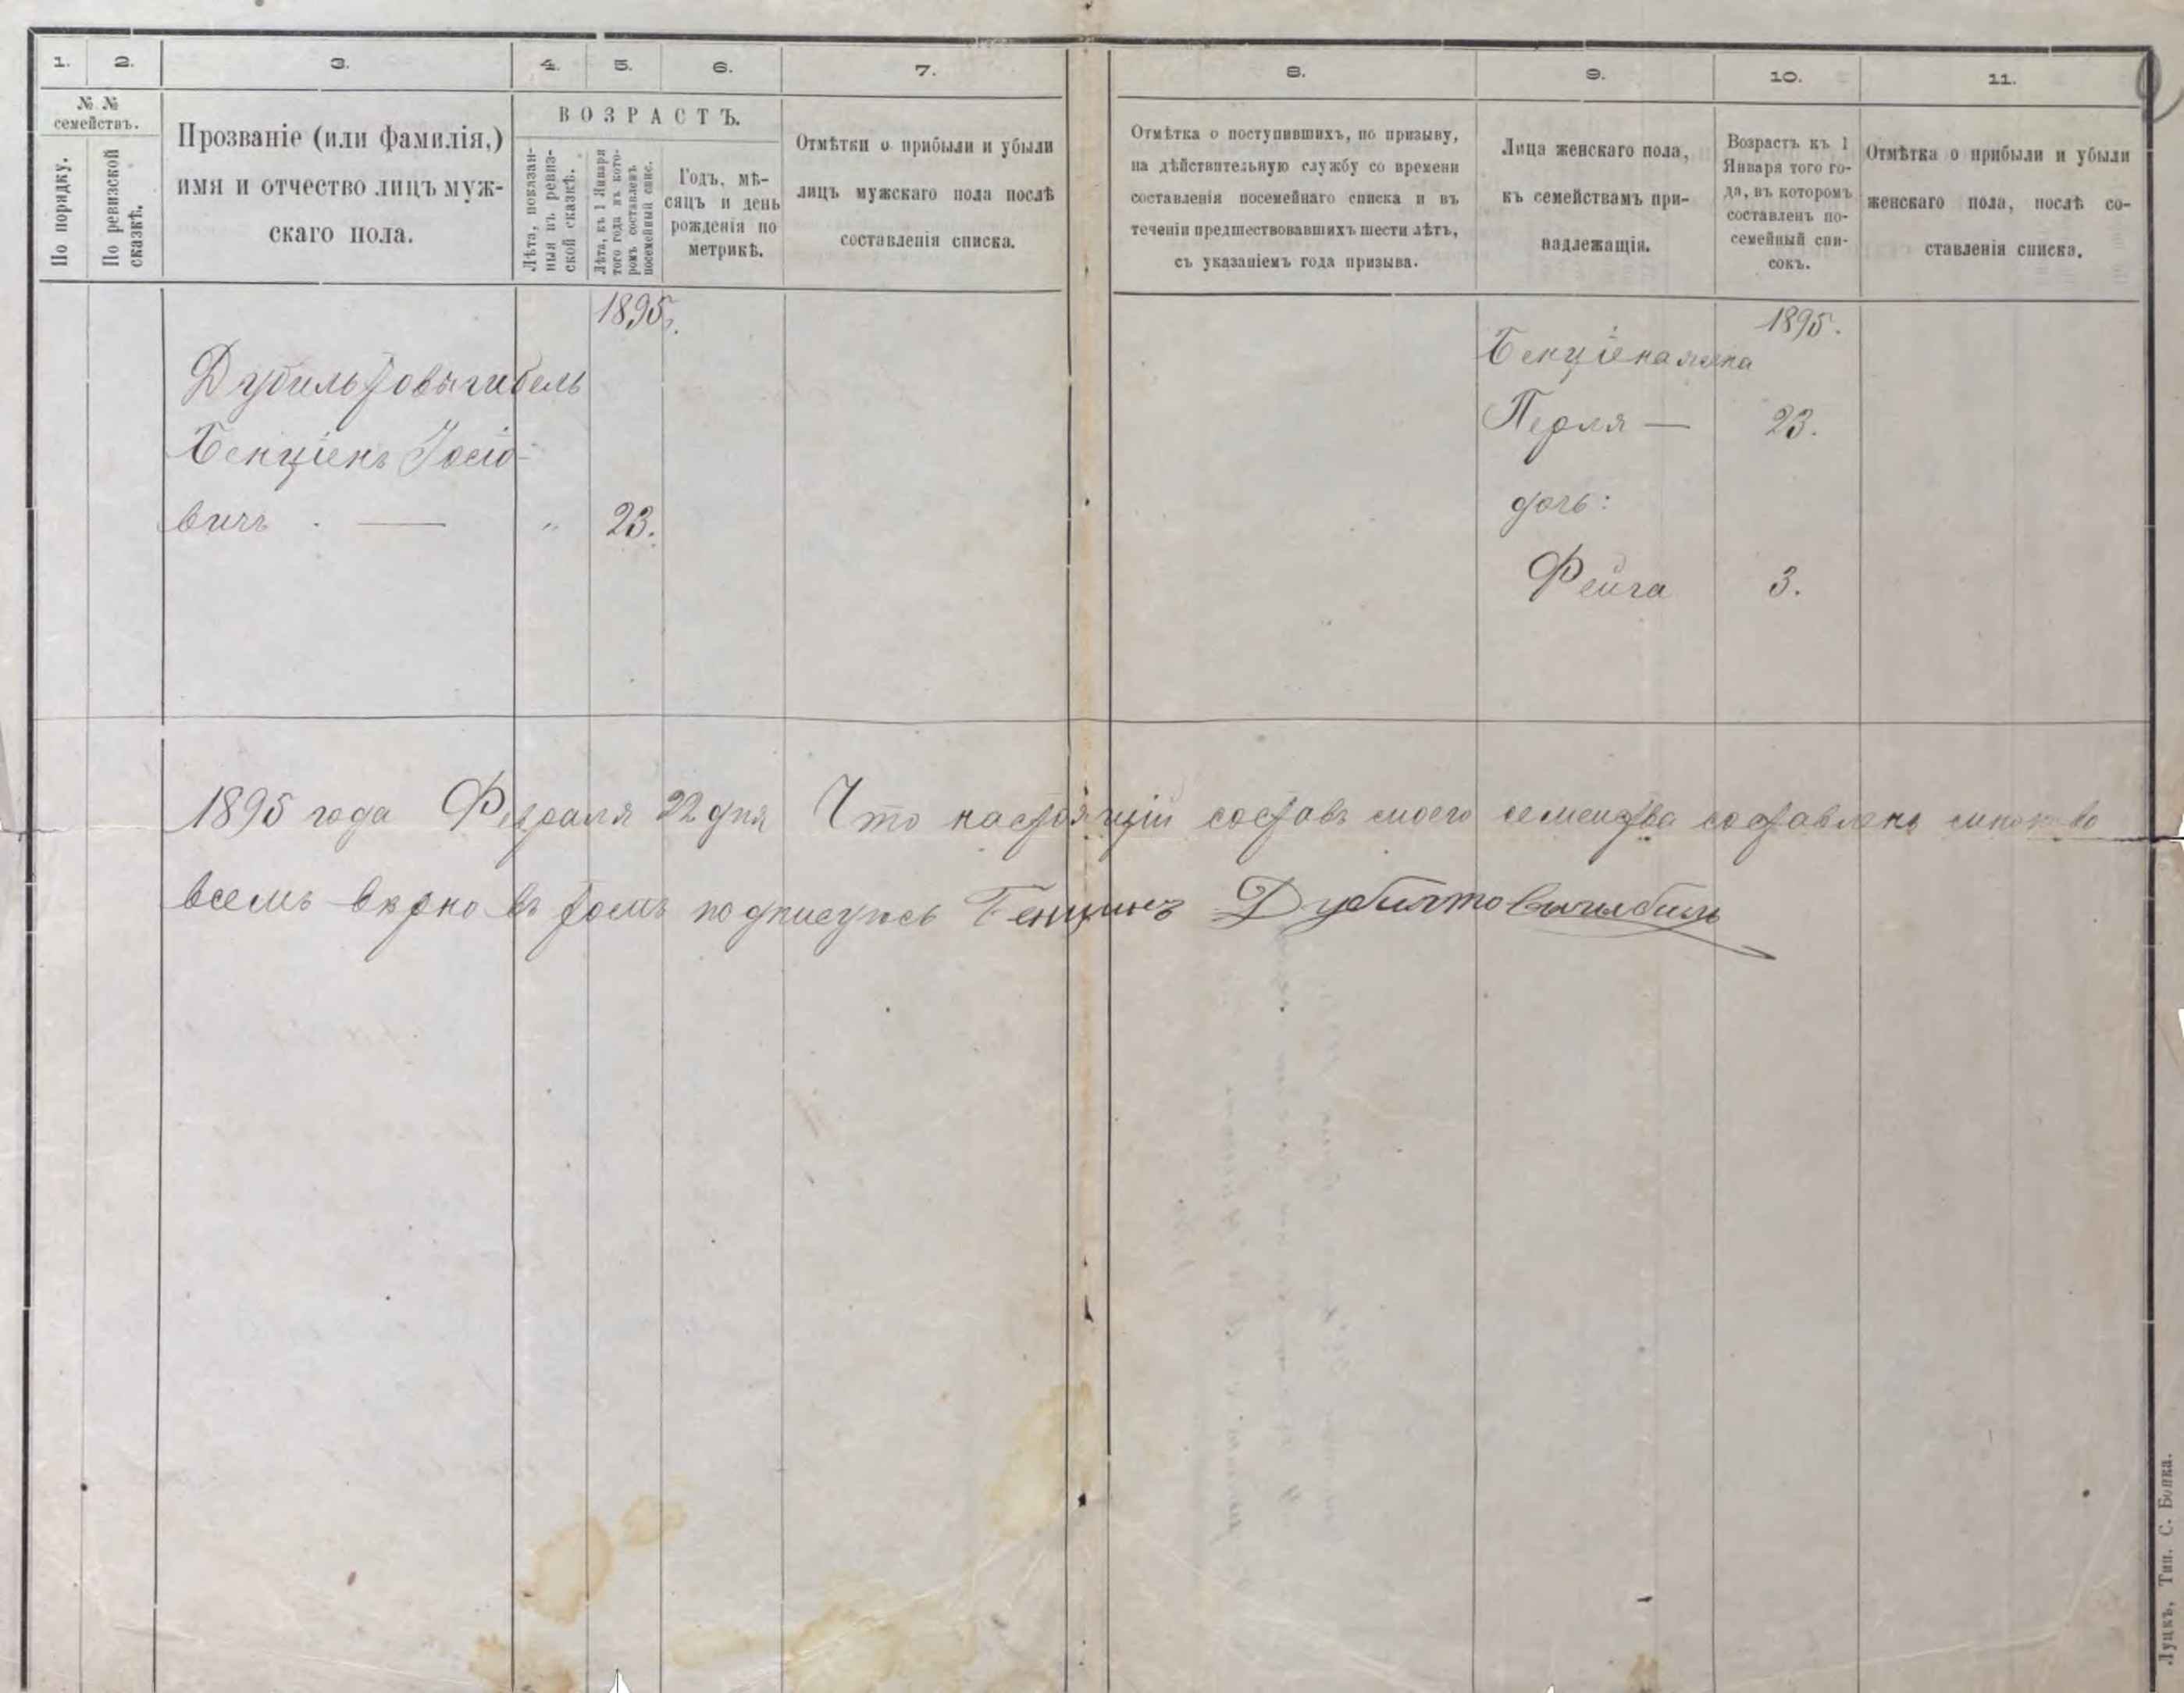 1. 2. 3. 4. 5. 6. 7. 8. 9. 10. 11.
№ №
семействъ.
По порядку.
По ревизской
сказкѣ.
Прозваніе (или фамилія,)
имя и отчество лицъ муж-
скаго пола.
ВОЗРАСТЪ.
Лѣта, показан-
ныя въ ревиз-
ской сказкѣ.
Лѣта, къ 1 Января
того года въ кото-
ромъ составленъ
посемейный спис.
Годъ, мѣ-
сяцъ и день
рожденія по
метрикѣ.
Отмѣтки о прибыли и убыли
лицъ мужскаго пола послѣ
составленія списка.
Отмѣтка о поступившихъ, по призыву,
на дѣйствительную службу со времени
составленія посемейнаго списка и въ
теченіи предшествовавшихъ шести лѣтъ,
съ указаніемъ года призыва.
Лица женскаго пола,
къ семействамъ при-
надлежащія.
Возрастъ къ 1
Января того го-
да, въ которомъ
составленъ по-
семейный спи-
сокъ.
Отмѣтка о прибыли и убыли
женскаго пола, послѣ со-
ставленія списка.
1895г.
Бенціень Іосіо-
вичъ . — „ 23.
1895.
Бенціена жена
Перля — 23.
дочь:
Фейга 3.
1895 года Февраля 22 дня Что настоящій составъ моего семейства составленъ мною во
всемъ вѣрно въ томъ подписуюсь Бенцинъ
Луцкъ, Тип. С. Бонка.